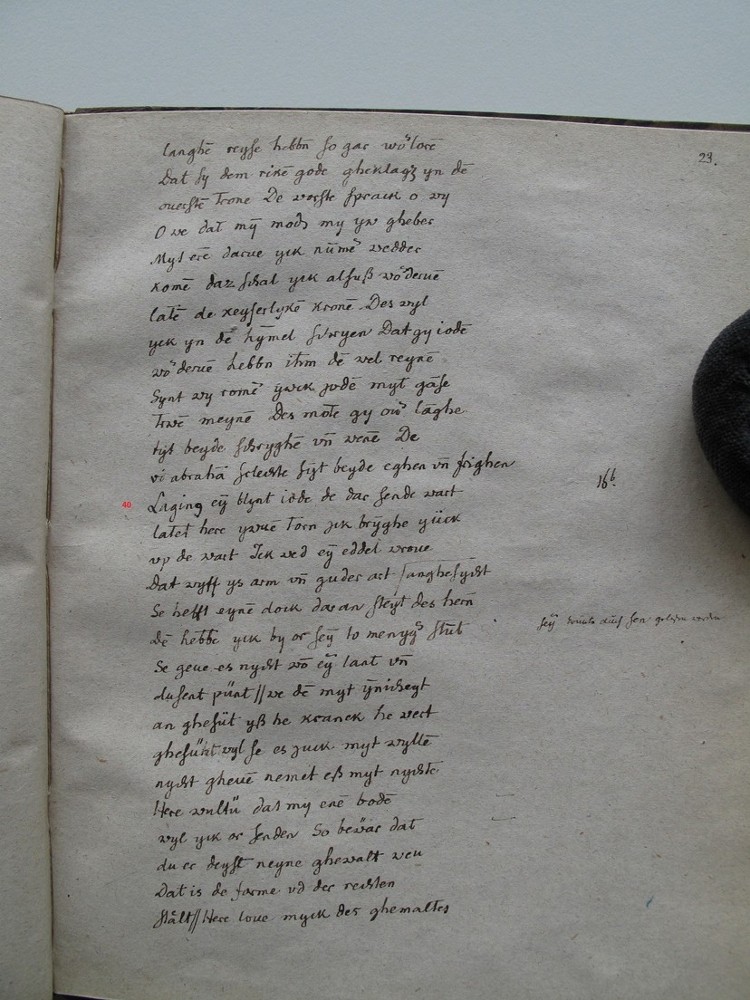 23.
langhē reyse hebbn so gar wōͦlorē
Dat sy dem rikē gode gheklagʒ yn dē
ouerstē Trone De verste sprack o wy
O we dat mȳ modʒ my yw gheber
Myt erē darue yck nūmē wedder
komē daz schal yck alsuß wōderuē
latē de keyserlykē kronē Des wyl
yck yn dē hȳmel schryen Dat gy iodē
wōderuē hebbn ihm dē vel reynē
Synt wy romē ÿwck jodē myt gāse
Trwē meynē Des mote gy oū lāghe
tijt beyde schryghē vn̄ wenē De
vō abrahā slechte sijt beyde eghen vn̄ frighen
16b.
40
Laging eȳ blynt iode de dar sende wart
latet here ywue torn yck brȳghe yück
vp de wart Ick wed eȳ eddel vrouē
Dat wyff ys arm vn̄ guder art / anghesycht
Se hefft eynē dock daran steyt des hern̄
sey
Dē hebbē yck by or seȳ to menyȳ stūt
Se geue es nycht wō eȳ lant vn̄
dusent pūnt // we dē myt ȳnicheyt
an ghesūt yß he kranck he wert
ghesūnt wyl se es juck myt wyllē
nycht gheuē nemēt eß myt nychte
Here wultū dat my enē bodē
wyl yck or senden So bewar dat
du er deyst neyne ghewalt wen
Dat is de forme vā der rechten
stālt // Here loue myck des ghemaltes